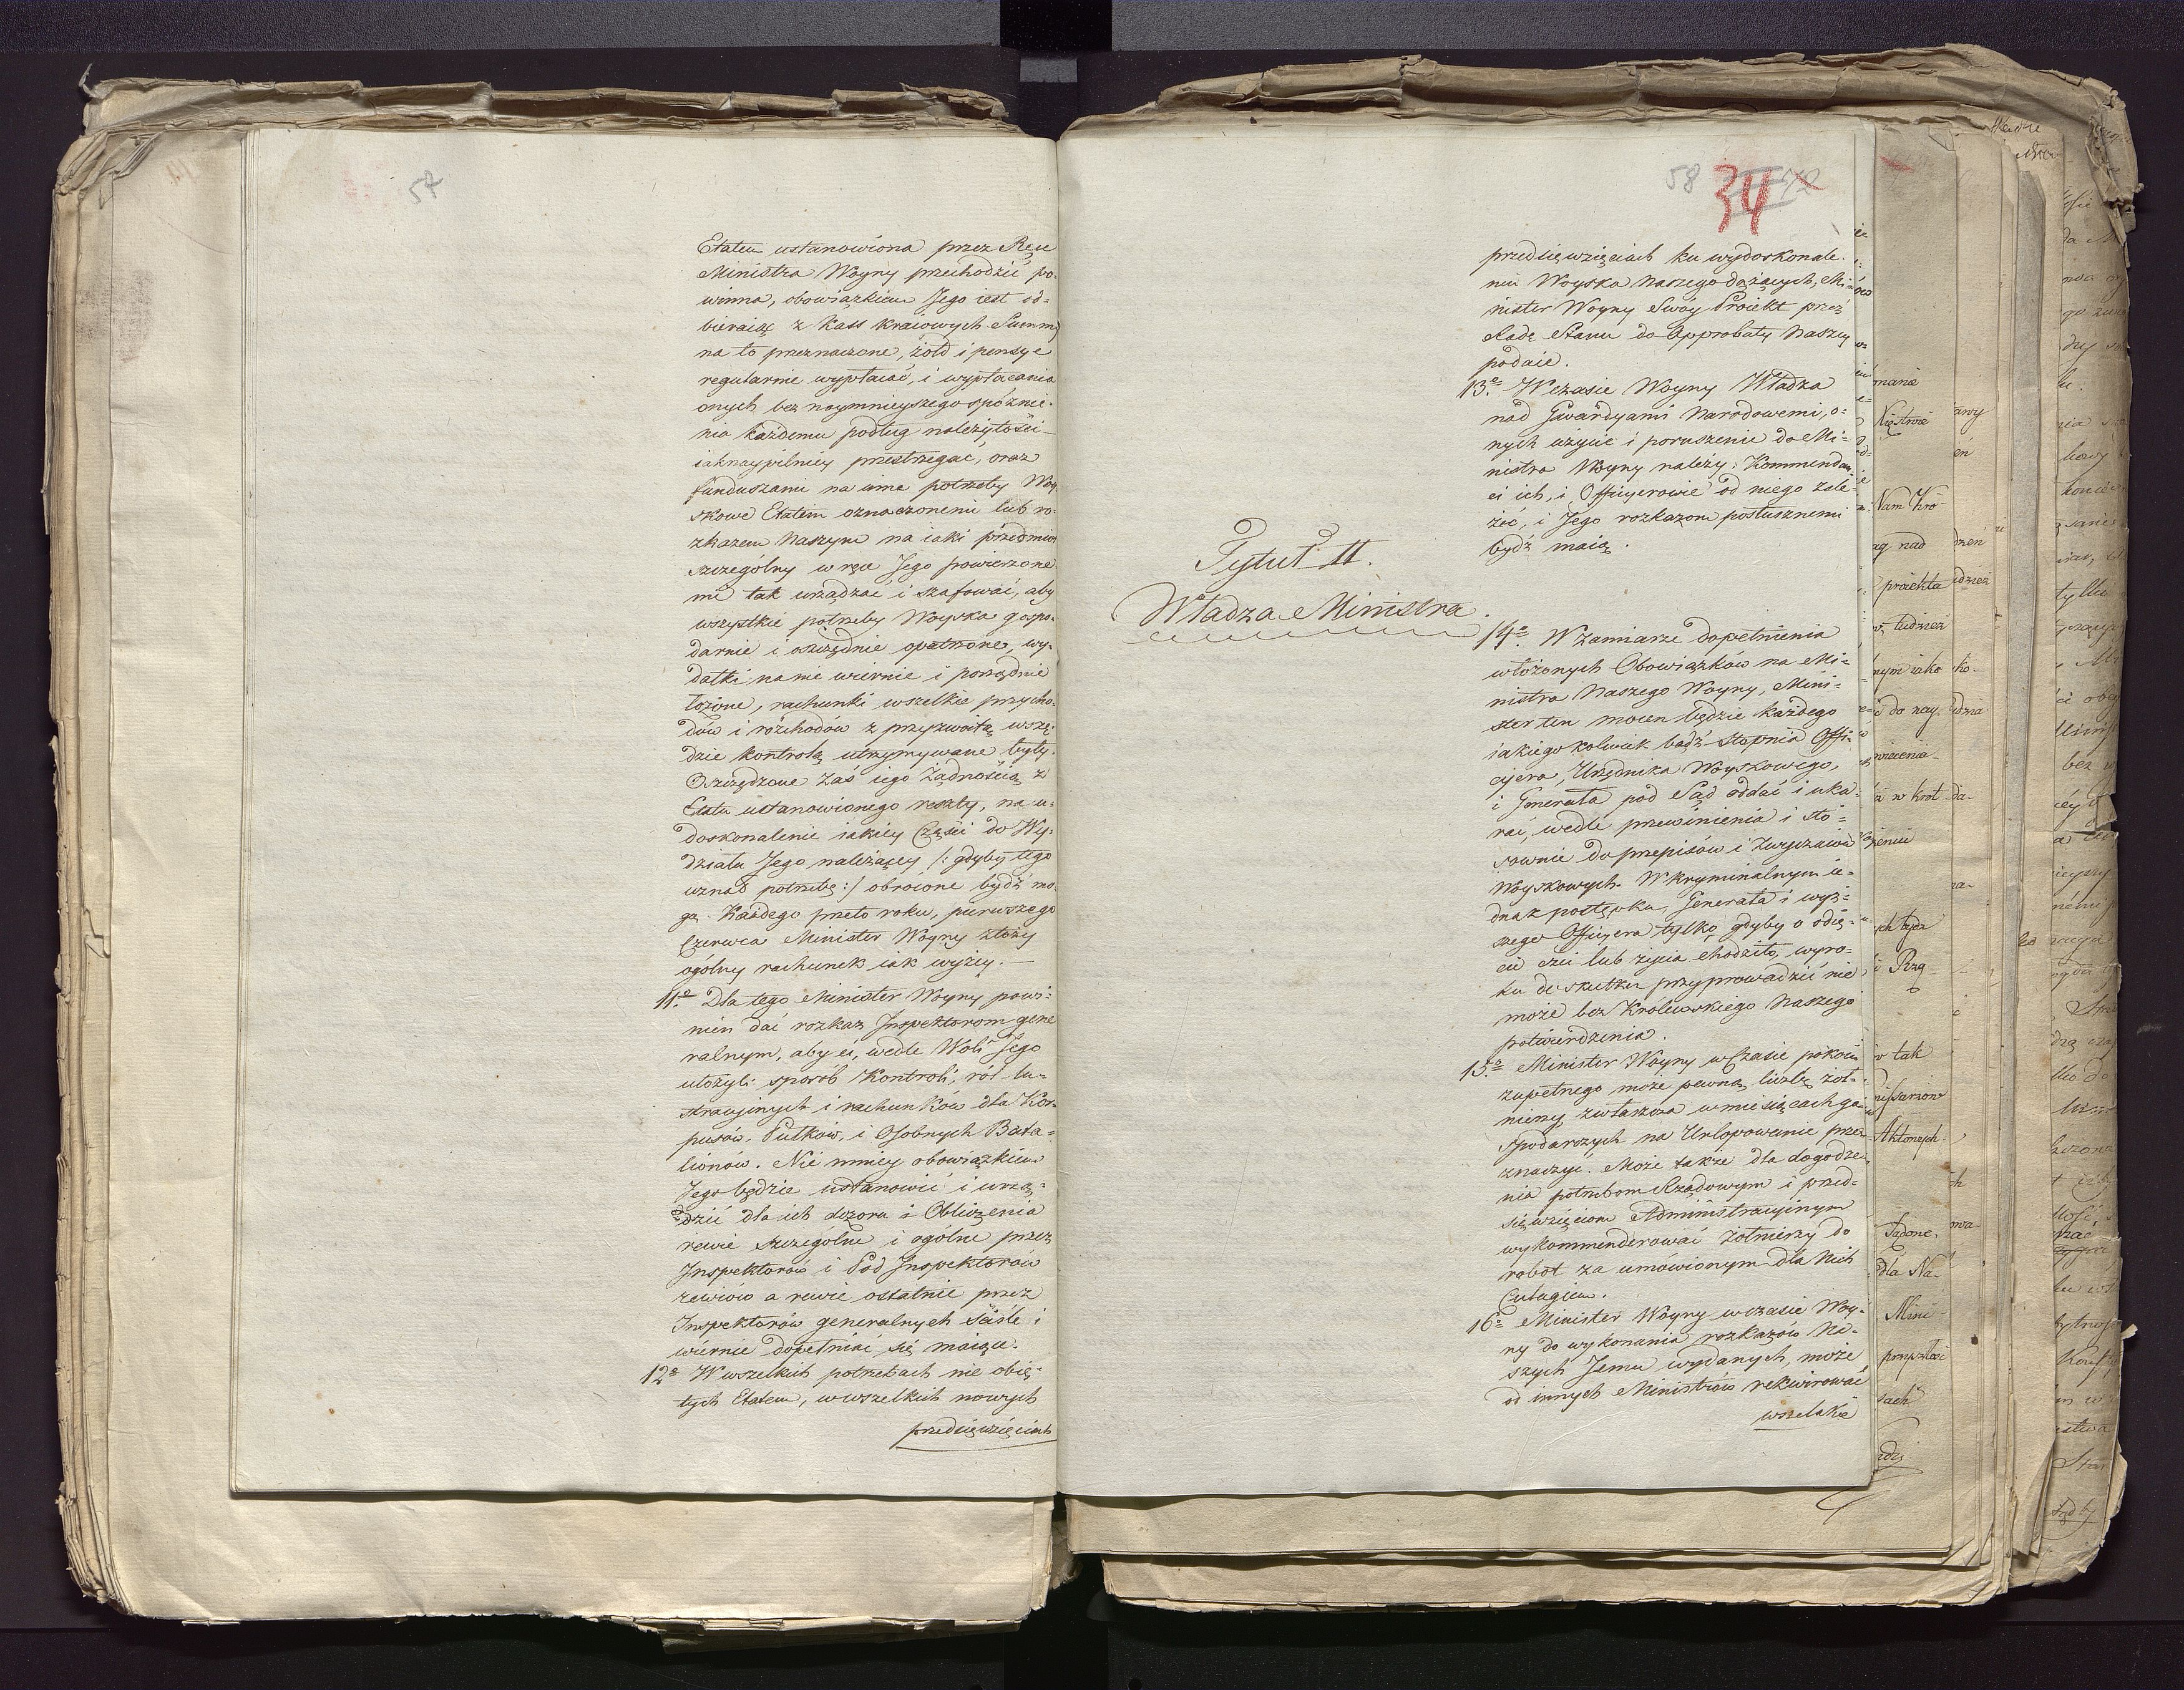 57
Etatem ustanowiona przez Ręce
Ministra Woyny przechodzić po-
winna, obowiązkiem Jego iest od-
bieraiąc z Kass Kraiowych Summy
na to przeznaczone, żołd i pensye
regularnie wypłacać, i wypłacania
onych bez naymnieyszego spóźnie-
nia każdemu podług należytości
iaknaypilniey przestrzegać, oraz
funduszami na inne potrzeby Woy-
skowe Etatem oznaczonemi lub ro-
zkazem Naszym na iaki przedmiot
szczególny w ręce Jego powierzone-
mi tak urządzać i szafować, aby
wszystkie potrzeby Woyska gospo-
darnie i oszczędnie opatrzone, wy-
datki na nie wiernie i porządnie
łożone, rachunki wszelkie przycho-
dów i rozchodów z przyzwoitą wszę-
dzie kontrolą utrzymywane były.
Oszczędzone zaś iego Żądnością z
Etatu ustanowionego reszty, na u-
doskonalenie iakiey Części do Wy-
działu Jego należącey /: gdyby tego
uznał potrzebę :/ obrócone bydź mo-
gą. Każdego przeto roku, pierwszego
Czerwca Minister Woyny złoży
ogólny rachunek iak wyżey. —
11º Dla tego Minister Woyny powi-
nien dać rozkaz Inspektorom gene
ralnym, aby ci, wedle Woli Jego
ułożyli sposób Kontroli, ról lu-
stracyinych i rachunków dla Kor-
pusów, Pułków, i Osobnych Bata-
lionów. Nie mniey obowiązkiem
Jego będzie ustanowić i urzą-
dzić dla ich dozoru i Obliczenia
rewie szczególne i ogólne przez
Inspektorów i Pod Inspektorów
rewiów a rewie ostatnie przez
Inspektorów generalnych ściśle i
wiernie dopełniać się maiące.
12º W wszelkich potrzebach nie obię-
tych Etatem, w wszelkich nowych
przedsięwzięciach
58 34 72
przedsięwzięciach ku wydoskonale-
niu Woyska Naszego dążących, Mi-
nister Woyny Swóy Proiekt przez
Radę Stanu do Approbaty Naszey
podaie.
13º W czasie Woyny Władza
nad Gwardyami Narodowemi, o-
nych użycie i poruszenie do Mi-
nistra Woyny należy: Kommendan-
ci ich, i Officyerowie od niego zale-
żeć, i Jego rozkazom posłusznemi
bydź maią.
Tytuł II.
Władza Ministra.
14º W zamiarze dopełnienia
włożonych Obowiązków na Mi-
nistra Naszego Woyny, Mini-
ster ten mocen będzie każdego
iakiegokolwiek bądź stopnia Offi-
cyera, Urzędnika Woyskowego,
i Generała pod Sąd oddać i uka-
rać, wedle przewinienia i sto-
sownie do przepisów i Zwyczaiów
Woyskowych. W kryminalnym ie-
dnak postępku, Generała i wyż-
szego Officyera tylko gdyby o odię-
cie czci lub życia chodziło, wyro-
ku do skutku przyprowadzić nie
może bez Królewskiego Naszego
potwierdzenia.
15º Minister Woyny w Czasie pokoiu
zupełnego może pewną liczbę żoł-
nierzy, zwłaszcza w miesiącach go-
spodarczych na Urlopowanie prze-
znaczyć. Może także dla dogodze-
nia potrzebom Rządowym i przed-
sięwzięciom Administracyinym
wykommenderować żołnierzy do
robot za umówionym dla Nich
Culagiem.
16º Minister Woyny w czasie Woy-
ny do wykonania rozkazów Na-
szych Jemu wydanych, może
od innych Ministrów rekwirować
wszelakie